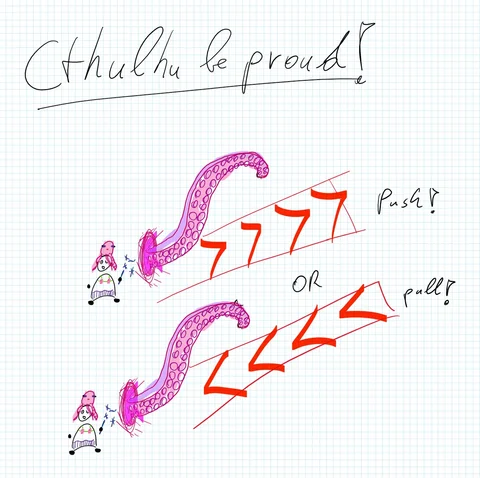 Cthulhu be proud!
Push!
OR
pull!